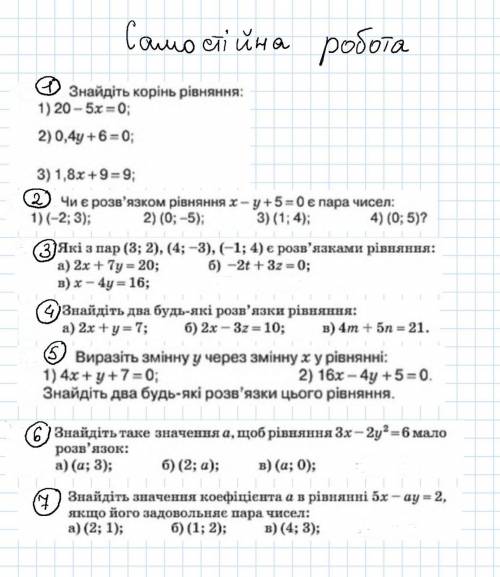 Самостійна робота
1 Знайдіть корінь рівняння:
1) 20 – 5x = 0;
2) 0,4y + 6 = 0;
3) 1,8x + 9 = 9;
2 Чи є розв’язком рівняння x – y + 5 = 0 є пара чисел:
1) (–2; 3); 2) (0; –5); 3) (1; 4); 4) (0; 5)?
3 Які з пар (3; 2), (4; –3), (–1; 4) є розв’язками рівняння:
а) 2x + 7y = 20; б) –2t + 3z = 0;
в) x – 4y = 16;
4 Знайдіть два будь-які розв’язки рівняння:
а) 2x + y = 7; б) 2x – 3z = 10; в) 4m + 5n = 21.
5 Виразіть змінну y через змінну x у рівнянні:
1) 4x + y + 7 = 0; 2) 16x – 4y + 5 = 0.
Знайдіть два будь-які розв’язки цього рівняння.
6 Знайдіть таке значення a, щоб рівняння 3x – 2y² = 6 мало
розв’язок:
а) (a; 3); б) (2; a); в) (a; 0);
7 Знайдіть значення коефіцієнта a в рівнянні 5x – ay = 2,
якщо його задовольняє пара чисел:
а) (2; 1); б) (1; 2); в) (4; 3);